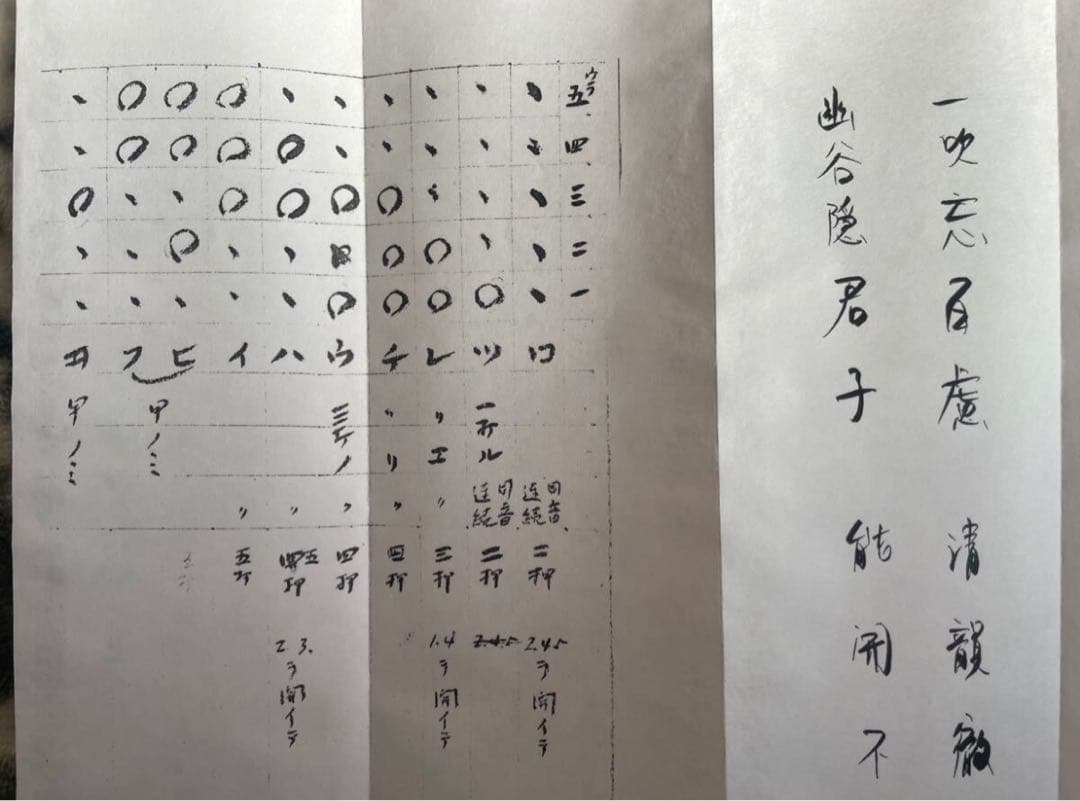 一吹忘百慮 清韻徹
幽谷隠君子 能開不
ウラ
五、四、三、二、一
ロ 同音連続 二押 2.4.5ヲ開イテ
ツ 同音連続 二押
レ リエ 〃 三押 1.4ヲ開イテ
チ 〃リ 〃 四押
ウ 〃 四押
ハ 〃 四押 五 2.3.ヲ開イテ
イ 〃 五押
ヒ 甲ノミ
フ
ヰ 甲ノミ